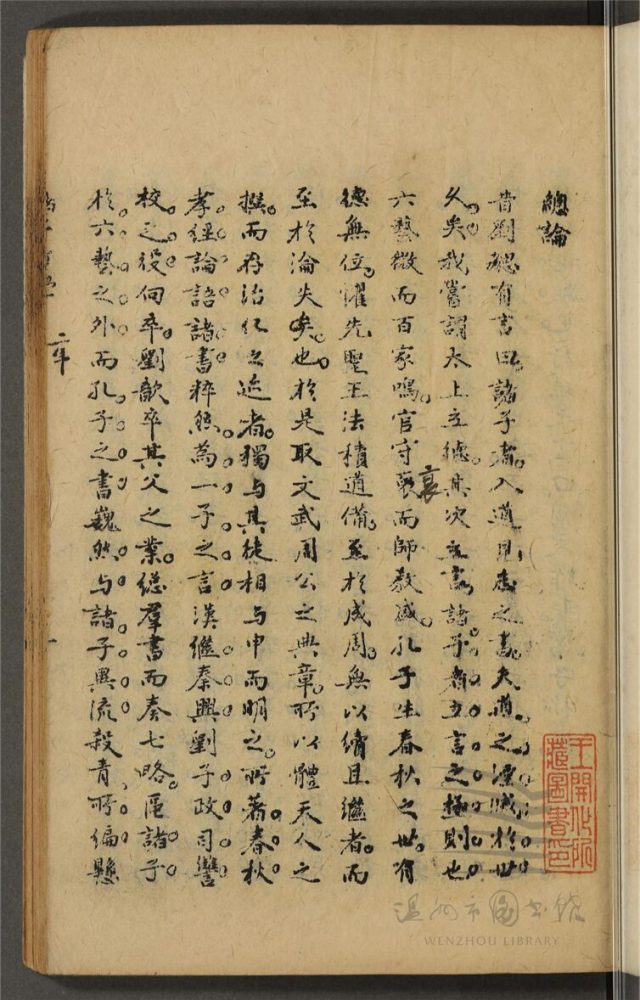 總論
昔劉勰有言曰諸子者入道見志之書夫道之湮歇於世
久矣我嘗謂太上立德其次立言諸子者立言之極則也
六藝微而百家鳴官守衰而師教盛孔子生春秋之世有
衰
德無位懼先聖王法積道備至於成周無以續且繼者而
至於淪失矣也於是取文武周公之典章所以體天人之
撰而存治化之迹者獨與其徒相與申而明之所著春秋
孝經論語諸書粹然為一子之言漢繼秦興劉子政司讐
校之役向卒劉歆卒其父之業總羣書而奏七略區諸子
於六藝之外而孔子之書巍然與諸子異流殺青所編懸
王開化所
藏圖書色
温州市图书馆
WENZHOU LIBRARY